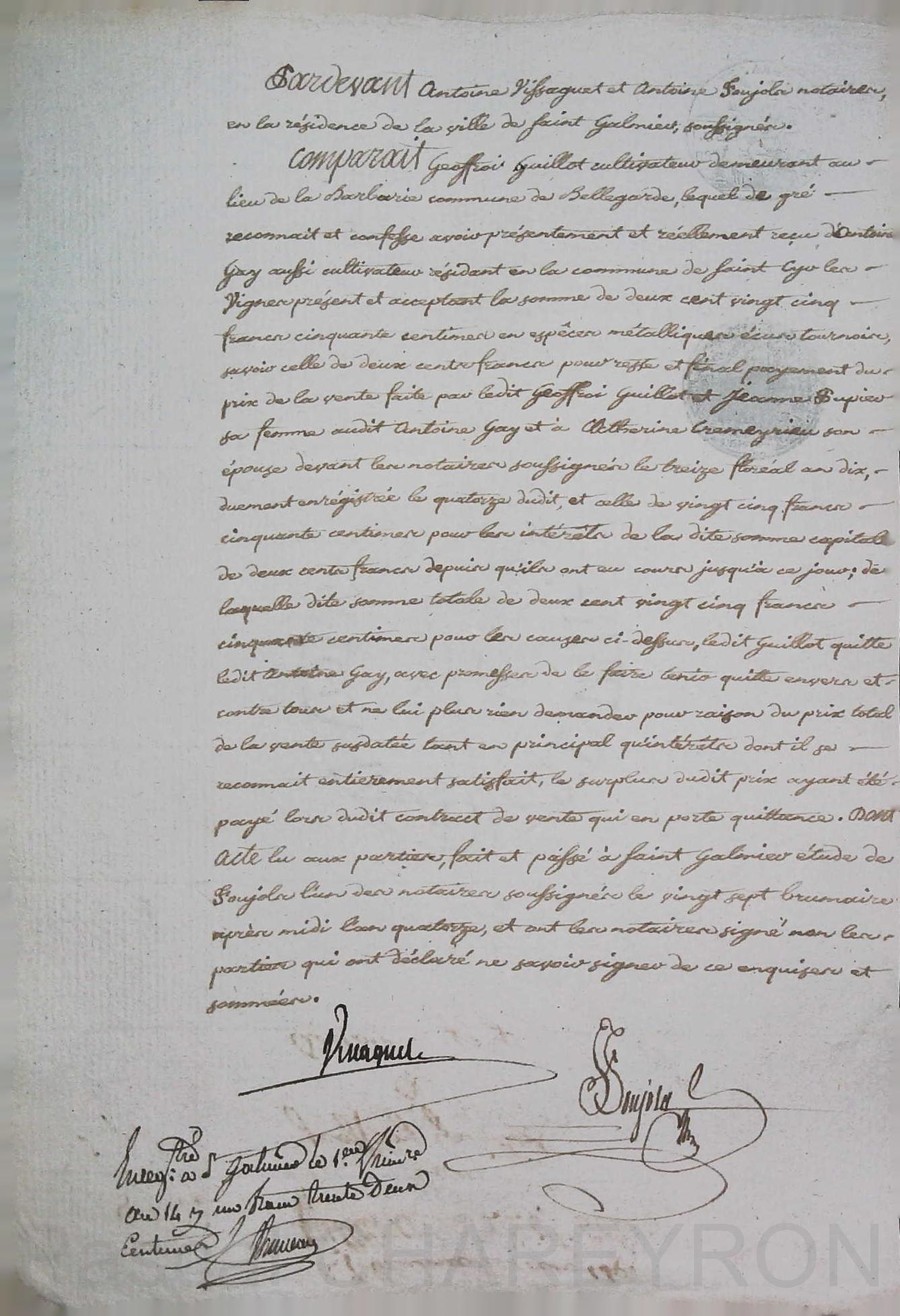 Pardevant Antoine Vissaguet et Antoine Soujols notaires,
en la résidence de la ville de saint Galmier, soussignés.
comparait Geoffroi Guillot cultivateur demeurant au
lieu de la Barbarie commune de Bellegarde, lequel de gré
reconnait et confesse avoir présentement et réellement reçu d'Antoine
Gay aussi cultivateur résidant en la commune de saint Cyr les
Vignes présent et acceptant la somme de deux cent vingt cinq
francs cinquante centimes en espèces métalliques écus tournois,
savoir celle de deux cents francs pour reste et final payement du
prix de la vente faite par ledit Geoffroi Guillot et Jeanne Dupier
sa femme audit Antoine Gay et à Catherine Cremeyrieu son
épouse devant les notaires soussignés le treize floréal an dix,
duement enrégistrée le quatorze dudit, et celle de vingt cinq francs
cinquante centimes pour les intérêts de la dite somme capitale
de deux cents francs depuis qu'ils ont eu cours jusqu'à ce jour; de
laquelle dite somme totale de deux cent vingt cinq francs
cinquante centimes pour les causes ci-dessus, ledit Guillot quitte
ledit Antoine Gay, avec promesses de le faire tenir quitte envers et
contre tous et ne lui plus rien demander pour raison du prix total
de la vente susdatée tant en principal qu'intérêts dont il se
reconnait entierement satisfait, le surplus dudit prix ayant été
payé lors dudit contract de vente qui en porte quittance. Dont
Acte lu aux parties, fait et passé à saint Galmier étude de
Soujols l'un des notaires soussignés le vingt sept brumaire
après midi l'an quatorze, et ont les notaires signé non les
parties qui ont déclaré ne savoir signer de ce enquises et
sommées.
Vissaguet
Soujols
Enregtré à St Galmier le 1er frimaire
an 14 un franc trente Deux
Centimes
CHAREYRON